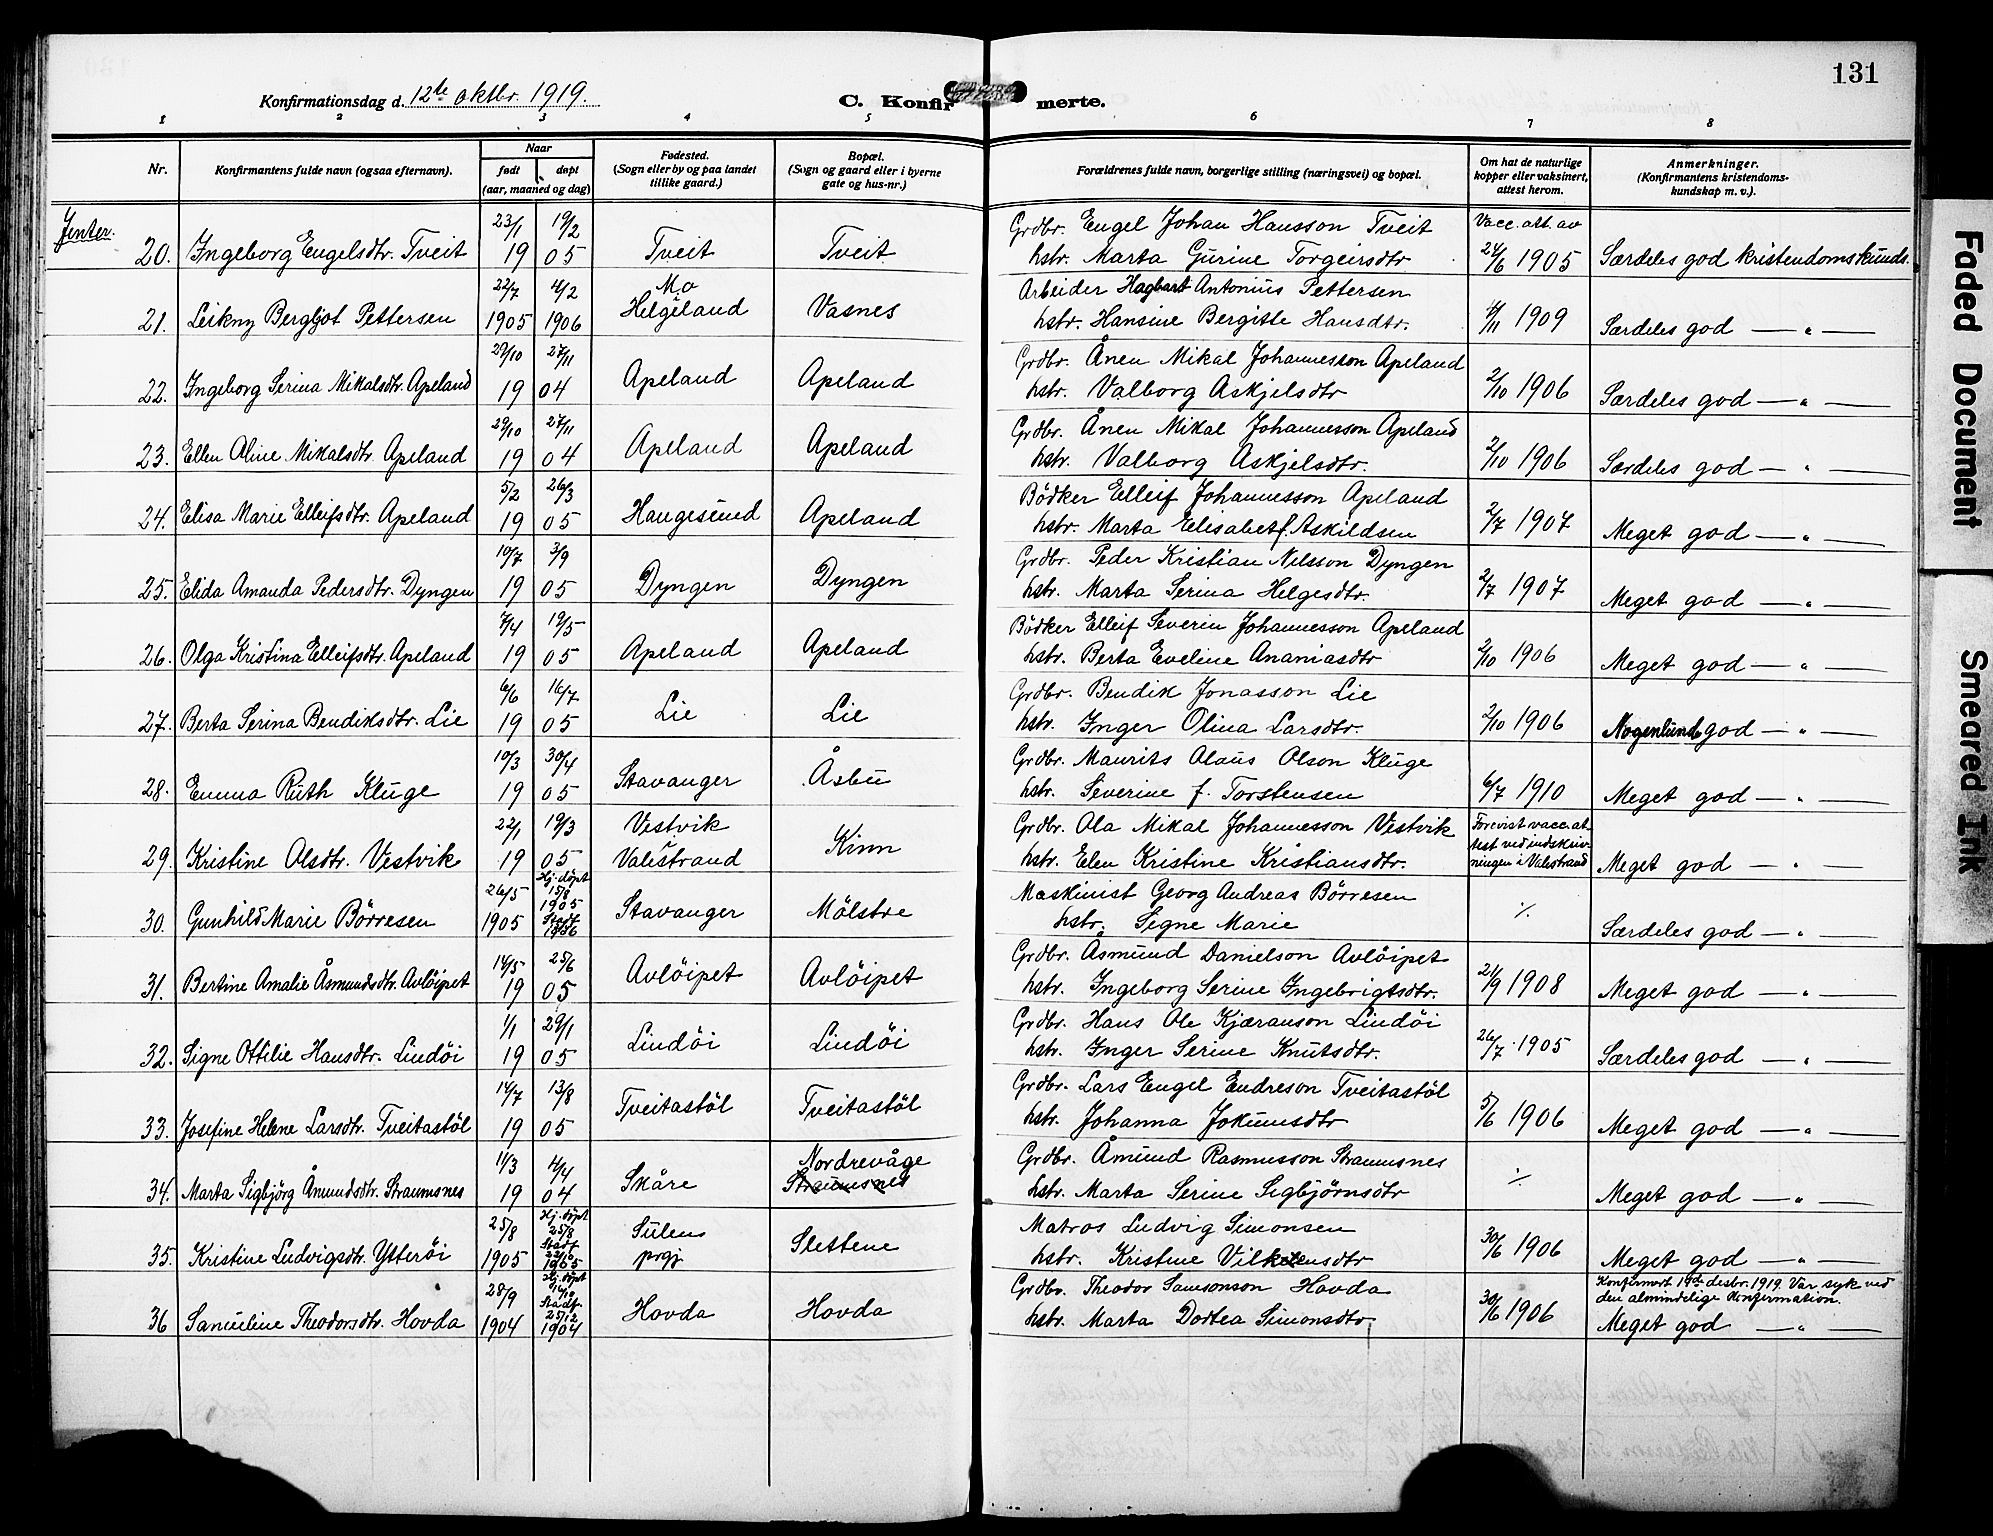 131
Konfirmationsdag d. 12te oktbr. 1919.
C. Konfirmerte.
1 2 3 4 5 6 7 8
Nr. Konfirmantens fulde navn (ogsaa efternavn). Naar født døpt (aar, maaned og dag) Fødested. (Sogn eller by og paa landet tillike gaard.) Bopæl. (Sogn og gaard eller i byerne gate og hus-nr.) Forældrenes fulde navn, borgerlige stilling (næringsvei) og bopæl. Om hat de naturlige kopper eller vaksinert, attest herom. Anmerkninger. (Konfirmantens kristendomskundskap m. v.).
Jenter.
23/1 19/2 Grdbr. Engel Johan Hansson Tveit Vacc. att. av
20. Ingeborg Engelsdtr. Tveit 19 05 Tveit Tveit hstr. Marta Gurine Torgeirsdtr 24/6 1905 Særdeles god kristendomskunds.
22/7 4/2 Mo Arbeider Hagbart Antonius Pettersen
21. Leikny Bergljot Pettersen 1905 1906 Helgeland Vasnes hstr. Hansine Bergitte Hansdtr. 4/11 1909 Særdeles god — " —
29/10 27/11 Grdbr. Ånen Mikal Johannesson Apeland
22. Ingeborg Serina Mikalsdtr. Apeland 19 04 Apeland Apeland hstr. Valborg Askjelsdtr 2/10 1906 Særdeles god — " —
29/10 27/11 Grdbr. Ånen Mikal Johannesson Apeland
23. Ellen Oline Mikalsdtr. Apeland 19 04 Apeland Apeland hstr. Valborg Askjelsdtr. 2/10 1906 Særdeles god — " —
5/2 26/3 Bödker Elleif Johannesson Apeland
24. Elisa Marie Elleifsdtr. Apeland 19 05 Haugesund Apeland hstr. Marta Elisabet f. Askildsen 2/7 1907 Meget god — " —
10/7 3/9 Grdbr. Peder Kristian Nilsson Dyngen
25. Elida Amanda Pedersdtr. Dyngen 19 05 Dyngen Dyngen hstr. Marta Serina Helgesdtr. 2/7 1907 Meget god — " —
7/4 19/5 Bödker Elleif Severin Johannesson Apeland
26. Olga Kristina Elleifsdtr. Apeland 19 05 Apeland Apeland hstr. Berta Eveline Ananiasdtr 2/10 1906 Meget god — " —
6/6 16/7 Grdbr. Bendik Jonasson Lie
27. Berta Serina Bendiksdtr. Lie 19 05 Lie Lie hstr. Inger Olina Larsdtr. 2/10 1906 Nogenlund god — " —
10/3 30/4 Grdbr. Maurits Olaus Olson Kluge
28. Emma Ruth Kluge 19 05 Stavanger Åsbu hstr. Severine f. Torstensen 6/7 1910 Meget god — " —
22/1 19/3 Vestvik Grdbr. Ola Mikal Johannesson Vestvik Forevist vacc. at-
test ved indskriv-
29. Kristine Olsdtr. Vestvik 19 05 Valestrand Kinn hstr. Elen Kristine Kristiansdtr. ningen i Valestrand Meget god — " —
26/5 Hj. döpt 15/8 1905 Maskinist Georg Andreas Börresen
30. Gunhild Marie Börresen 1905 Stadf. 1906 Stavanger Mölstre hstr. Signe Marie ./. Særdeles god — " —
14/5 25/6 Grdbr. Åsmund Danielson Avlöipet
31. Bertine Amalie Åsmundsdtr. Avlöipet 19 05 Avlöipet Avlöipet hstr. Ingeborg Serine Ingebrigtsdtr. 21/9 1908 Meget god — " —
1/1 29/1 Grdbr. Hans Ole Kjæranson Lindöi
32. Signe Ottilie Hansdtr. Lindöi 19 05 Lindöi Lindöi hstr. Inger Serine Knutsdtr. 26/7 1905 Særdeles god — " —
14/7 13/8 Grdbr. Lars Engel Endreson Tveitastöl
33. Josefine Helene Larsdtr. Tveitastöl 19 05 Tveitastöl Tveitastöl hstr. Johanna Jokumsdtr 5/6 1906 Meget god — " —
11/3 4/4 Nordrevåge Grdbr. Åmund Rasmusson Straumsnes
34. Marta Sigbjörg Åmundsdtr. Straumsnes 19 04 Skåre Straumsnes hstr. Marta Serine Sigbjörnsdtr ./. Meget god — " —
25/8 Hj. döpt 25/8 Sulen Matros Ludvig Simonsen
35. Kristine Ludvigsdtr. Ytteröi 1905 Stadf. 22/10 1905 prgj Slettene hstr. Kristine Vilkensdtr 30/6 1906 Meget god — " —
28/9 Hj. döpt Grdbr. Theodor Samsonson Hovda Konfirmert 14de desbr. 1919 Var syk ved
den almindelige konfirmation.
36 Samueline Theodorsdtr. Hovda 1904 Stadf. 25/12 1904 Hovda Hovda hstr. Marta Dortea Simonsdtr. 30/6 1906 Meget god — " —
Faded Document
Smeared Ink